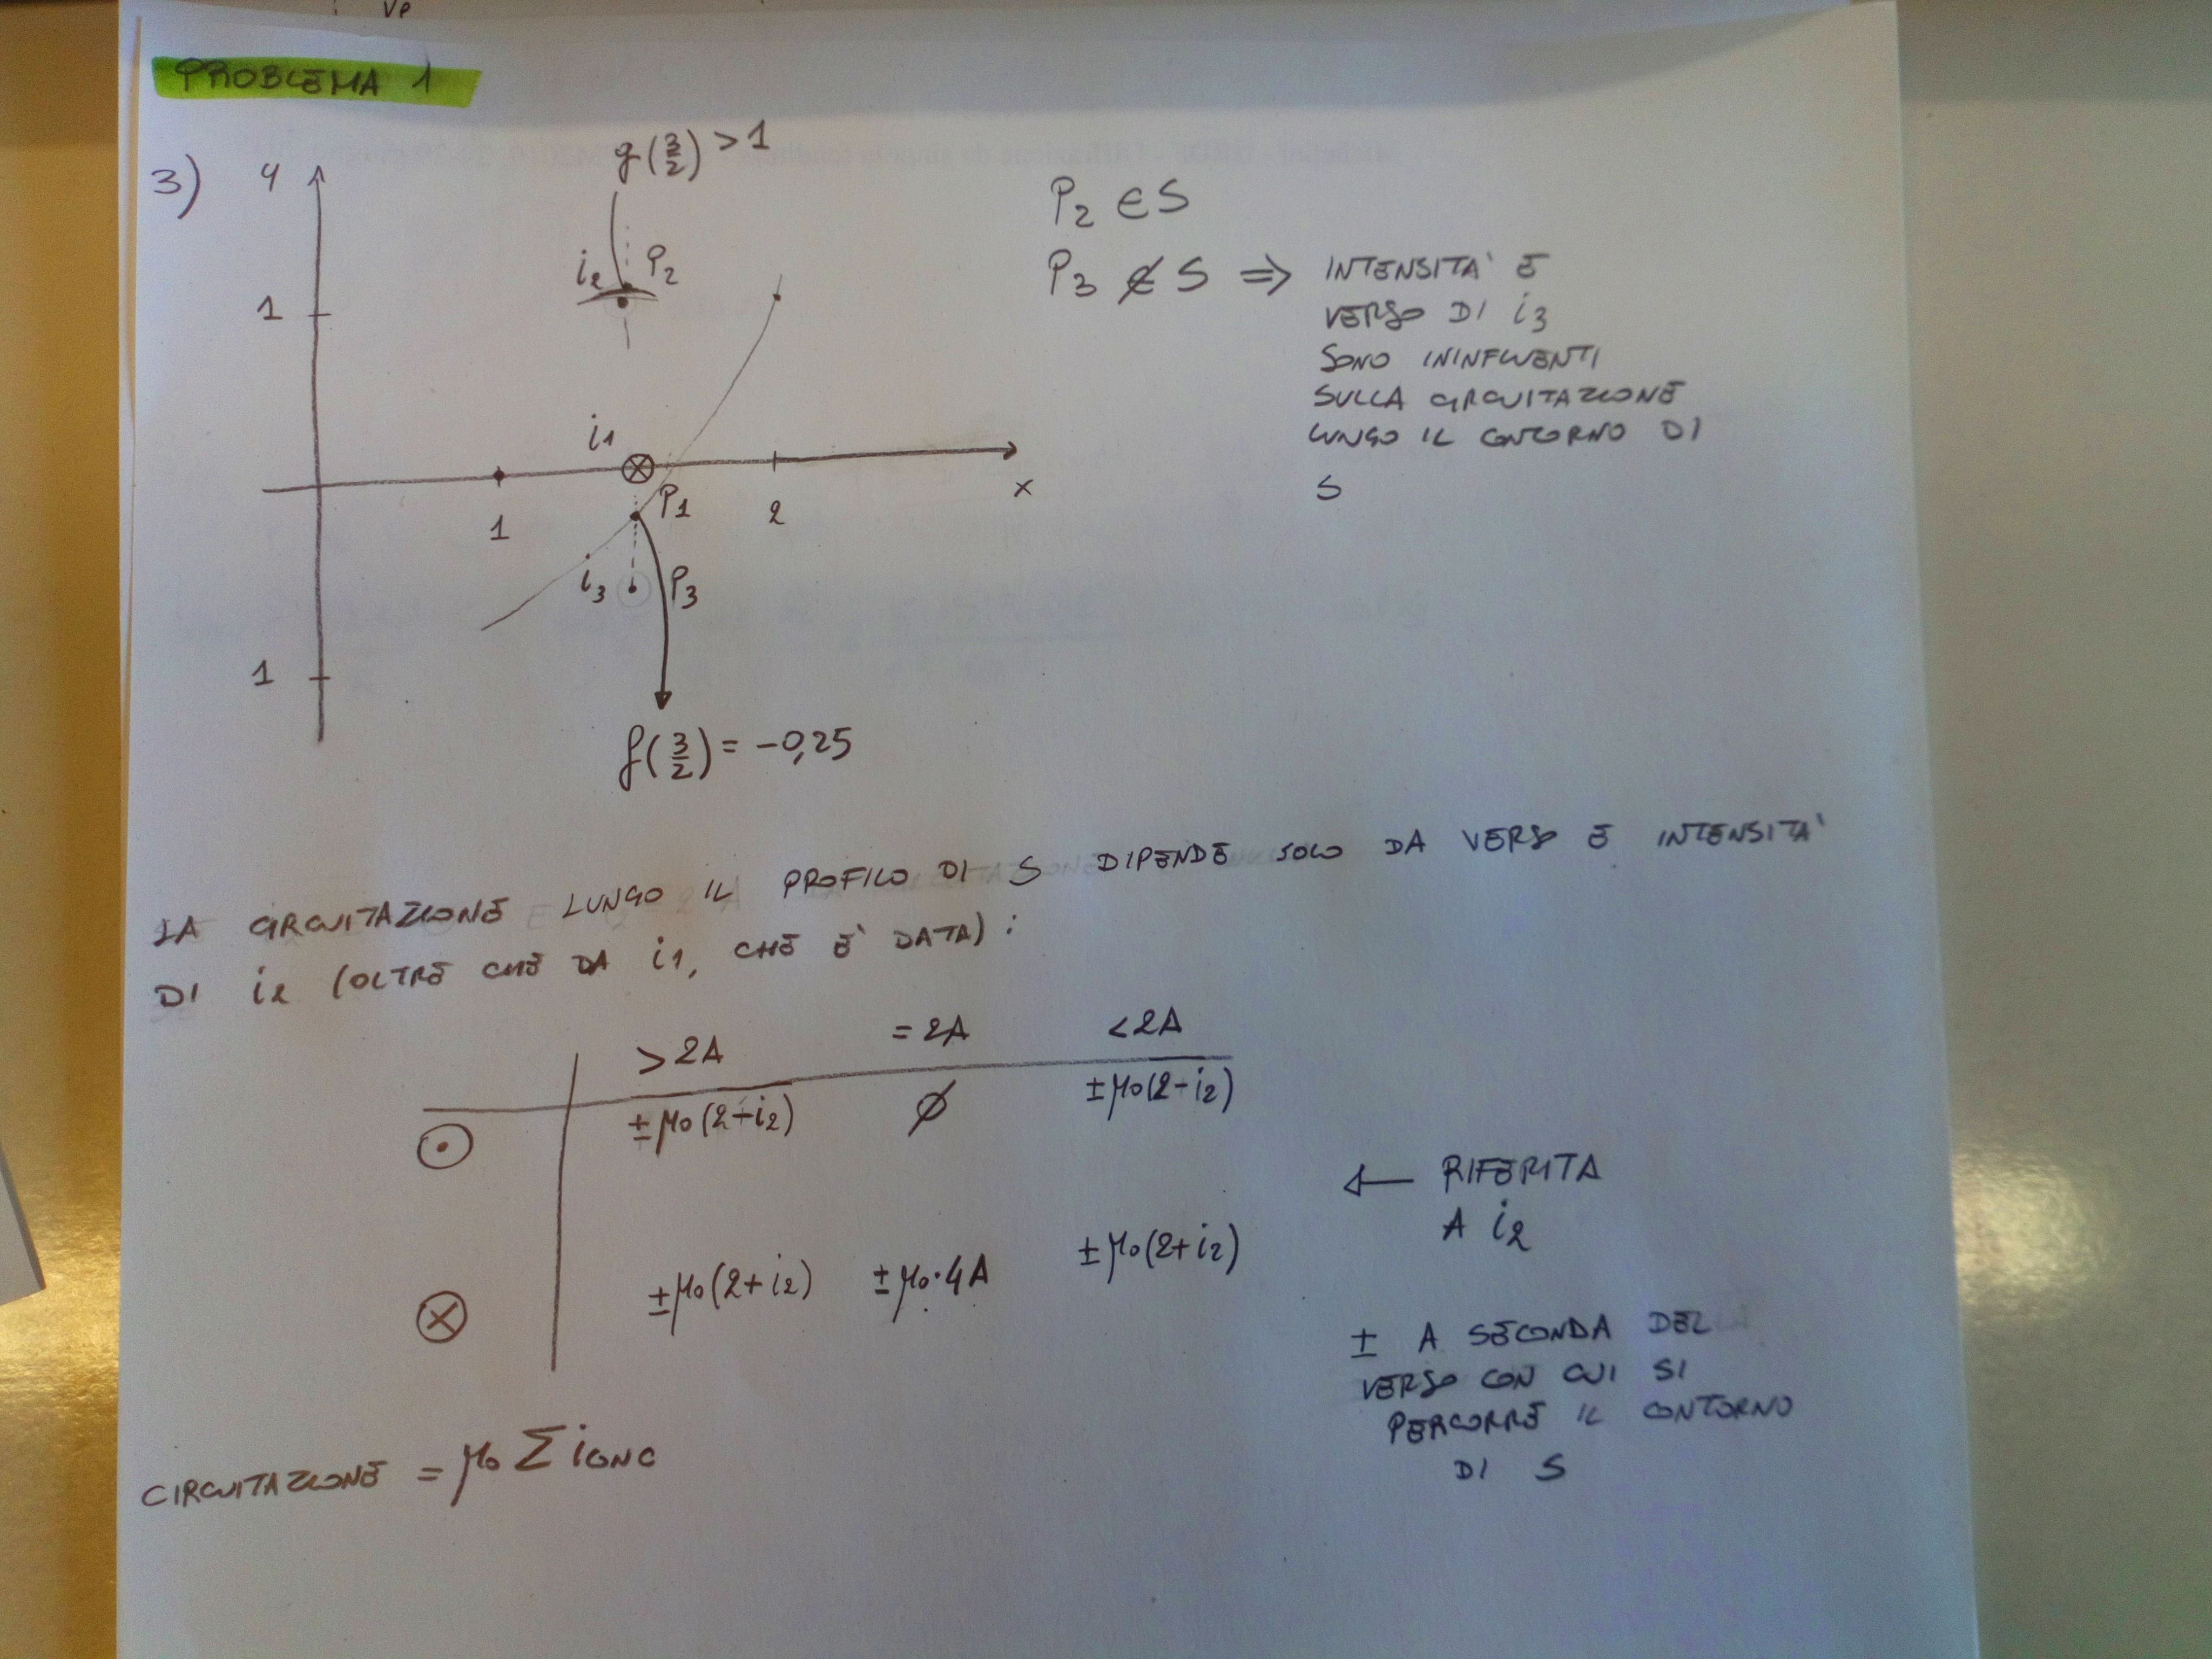 VP
PROBLEMA 1
3)
y
g(3/2) > 1
i2 P2
1
i1
P1
1
2
x
i3
P3
1
f(3/2) = -0,25
P2 ∈ S
P3 ∉ S ⇒ INTENSITA' E
VERSO DI i3
SONO ININFLUENTI
SULLA CIRCUITAZIONE
LUNGO IL CONTORNO DI
S
LA CIRCUITAZIONE LUNGO IL PROFILO DI S DIPENDE SOLO DA VERSO E INTENSITA'
DI i2 (OLTRE CHE DA i1, CHE E' DATA):
>2A =2A <2A
⊙ ±μ0(2-i2) ∅ ±μ0(2-i2)
⊗ ±μ0(2+i2) ±μ0·4A ±μ0(2+i2)
← RIFERITA
A i2
± A SECONDA DEL
VERSO CON CUI SI
PERCORRE IL CONTORNO
DI S
CIRCUITAZIONE = μ0 Σ iCONC